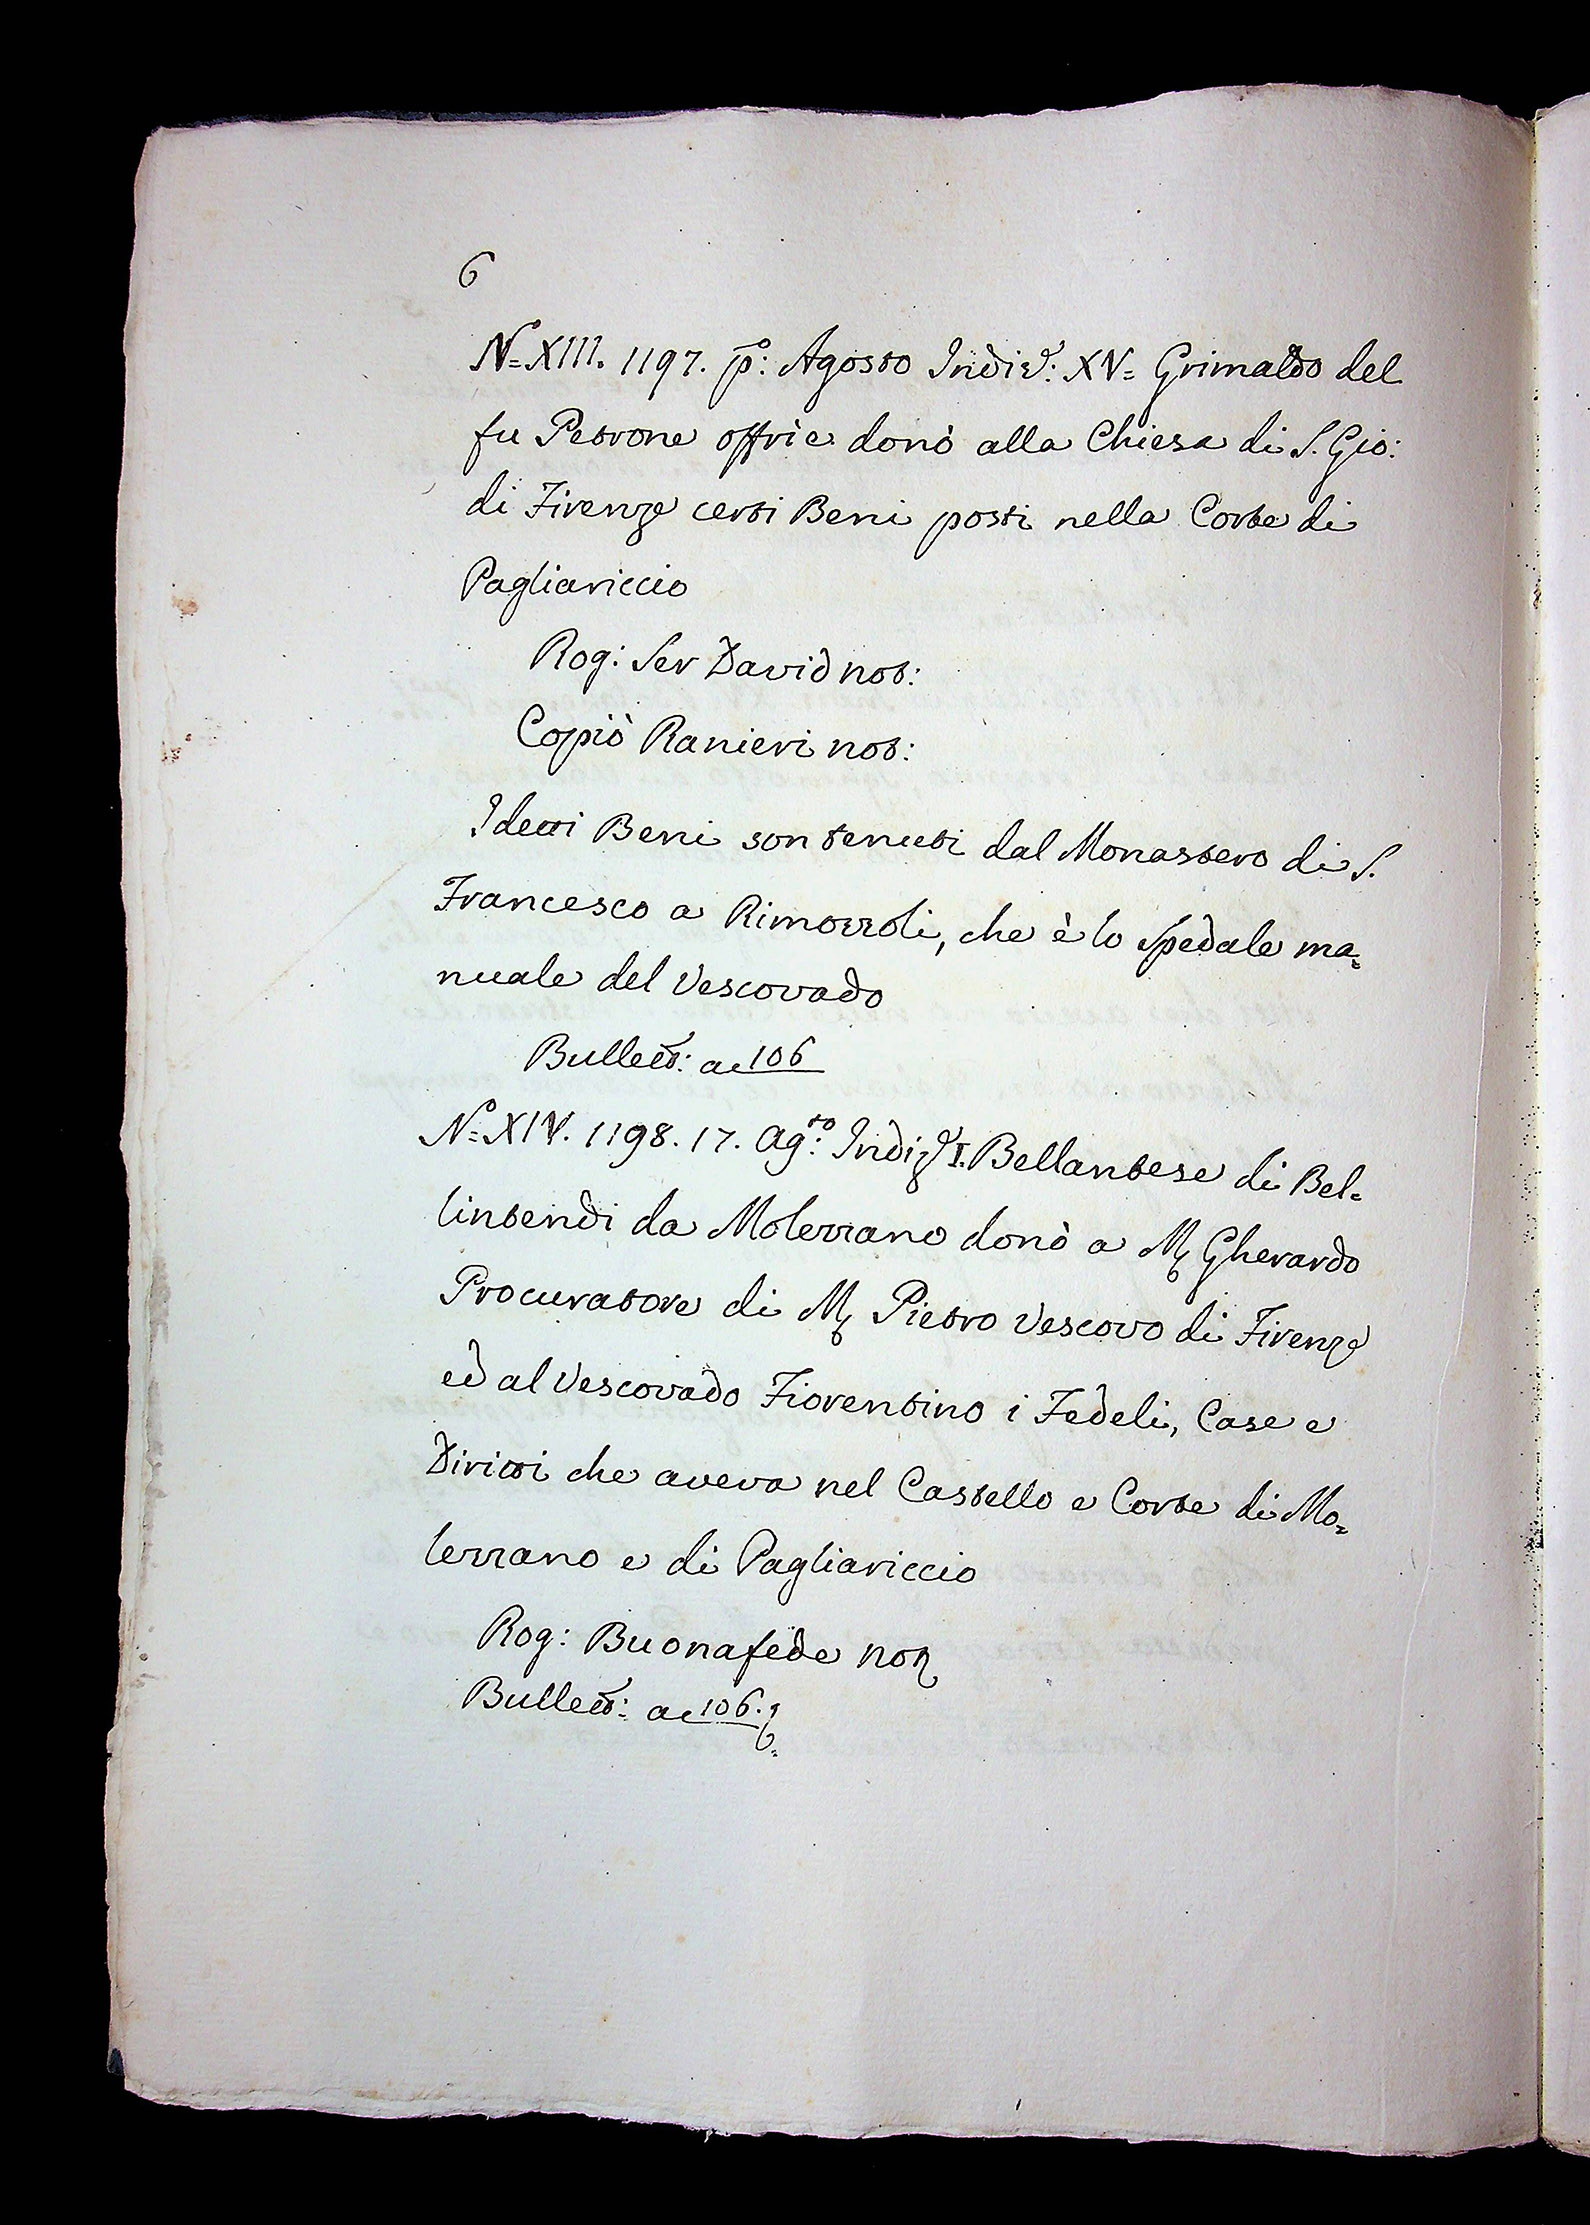 6
N.º XIII. 1197. p.º: Agosto Indiz.e: XV.= Grimaldo del
fu Petrone offrì e donò alla Chiesa di S. Gio:
di Firenze certi Beni posti nella Corte di
Pagliariccio
Rog: Ser David not:
Copiò Ranieri not:
I detti Beni son tenuti dal Monastero di S.
Francesco a Rimozzoli, che è lo Spedale ma=
nuale del Vescovado
Bullett: ac 106
N.º XIV. 1198. 17. Ag.to: Indiz.e I. Bellantese di Bel=
lintendi da Molezzano donò a M. Gherardo
Procuratore di M. Pietro Vescovo di Firenze
ed al Vescovado Fiorentino i Fedeli, Case e
Diritti che aveva nel Castello e Corte di Mo=
lezzano e di Pagliariccio
Rog: Buonafede not
Bullett: ac 106.